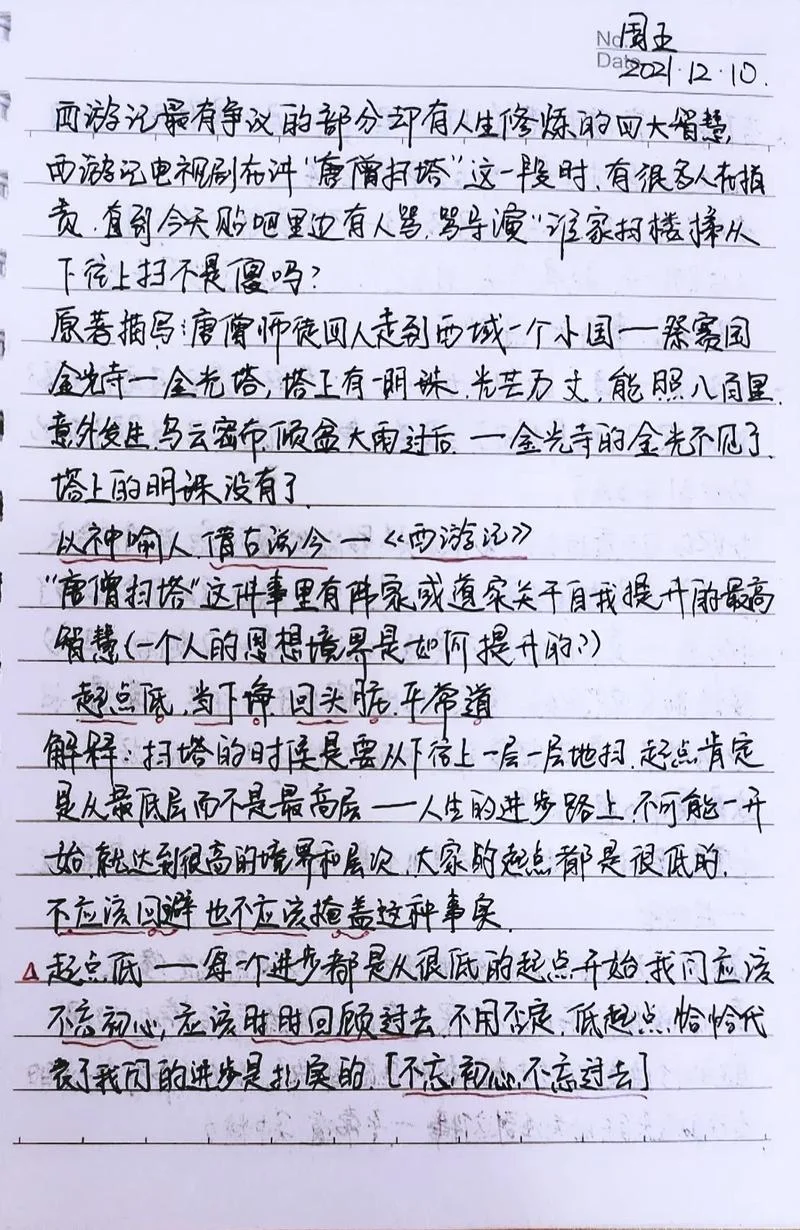 No. 周五
Date 2021.12.10.
西游记最有争议的部分却有人生修炼的四大智慧,
西游记电视剧在讲“唐僧扫塔”这一段时,有很多人在指
责,直到今天贴吧里边有人骂,骂导演“谁家扫楼梯从
下往上扫不是傻吗?
原著描写:唐僧师徒四人走到西域一个小国——祭赛国
金光寺—金光塔,塔上有一明珠,光芒万丈,能照八百里.
意外发生,乌云密布,倾盆大雨过后,—金光寺的金光不见了,
塔上的明珠没有了
以神喻人 借古说今—《西游记》
“唐僧扫塔”这件事里有佛家或道家关于自我提升的最高
智慧(一个人的思想境界是如何提升的?)
起点低,当下净 回头脏,平常道
解释:扫塔的时候是要从下往上一层一层地扫,起点肯定
是从最低层而不是最高层——人生的进步路上,不可能一开
始,就达到很高的境界和层次,大家的起点都是很低的,
不应该回避也不应该掩盖这种事实,
△起点低——每个进步都是从很低的起点开始,我们应该
不忘初心,应该时时回顾过去,不用否定,低起点,恰恰代
表了我们的进步是扎实的,[不忘初心,不忘过去]